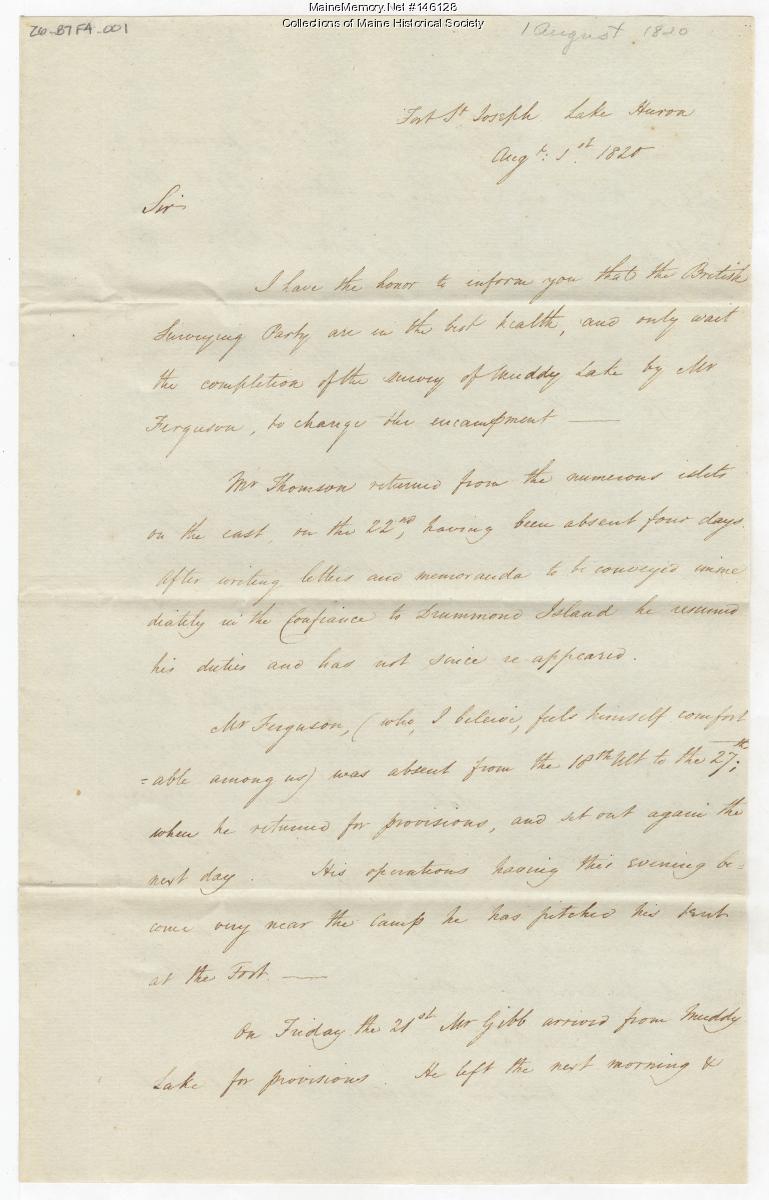 MaineMemory.Net #146128
Collections of Maine Historical Society
26-87FA-001
1 August 1820
Fort St Joseph Lake Huron
Augt: 1st. 1820
Sir
I have the honor to inform you that the British
Surveying Party are in the best health, and only wait
the completion of the survey of Muddy Lake by Mr
Ferguson, to change the encampment —
Mr Thomson returned from the numerous islets
on the east, on the 22nd, having been absent four days.
After writing letters and memoranda to be conveyed imme
diately in the Confiance to Drummond Island he resumed
his duties and has not since re appeared.
Mr Ferguson, (who, I beleive, feels himself comfort
=able among us) was absent from the 18th Ult to the 27th;
when he returned for provisions, and set out again the
next day. His operations having this evening be=
come very near the Camp he has pitched his tent
at the Fort. —
On Friday the 21st Mr Gibb arrived from Muddy
Lake for provisions. He left the next morning &